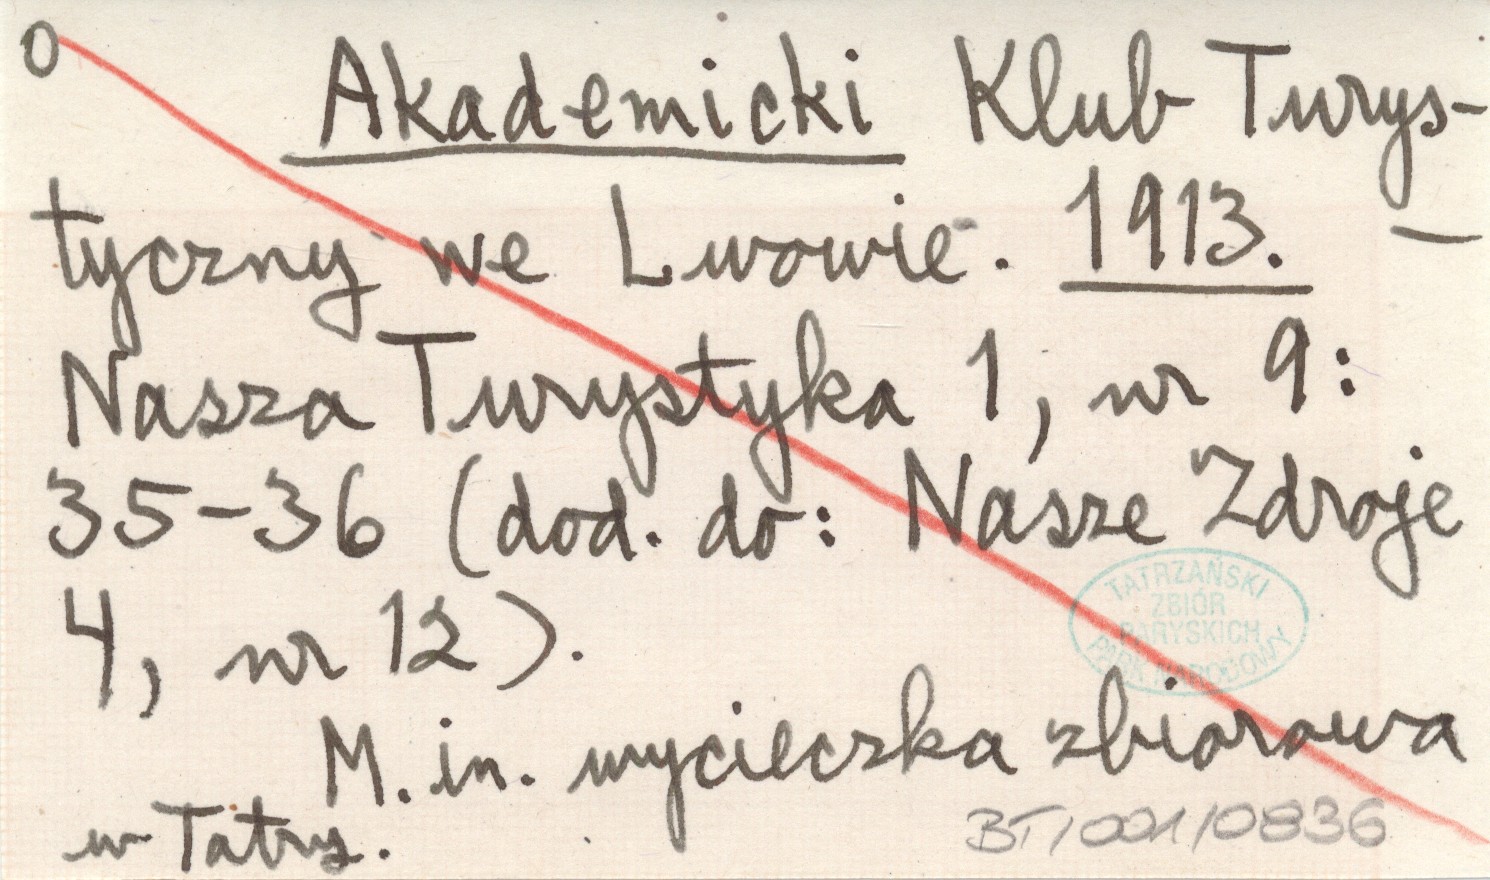 O Akademicki Klub Turys-
tyczny we Lwowie. 1913. —
Nasza Turystyka 1, nr 9:
35-36 (dod. do: Nasze Zdroje
4, nr 12).
TATRZAŃSKI
ZBIÓR
PARYSKICH
PARK NARODOWY
M. in. wycieczka zbiorowa
w Tatry.
BT/001/0836